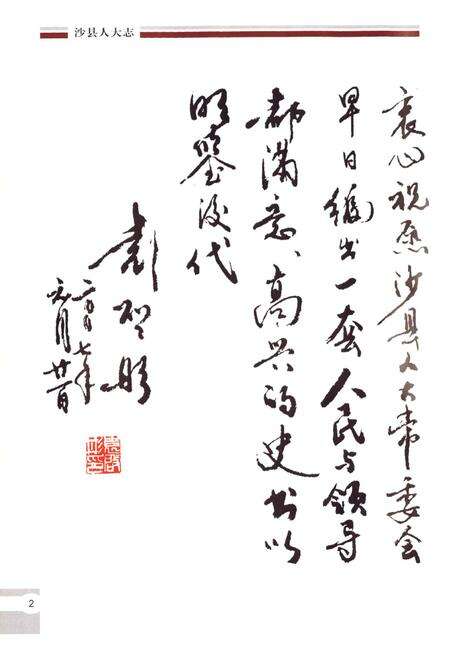 沙县人大志
衷心祝愿沙县人大常委会
早日编出一套人民与领导
都满意、高兴的史书以
明鉴后代
袁启彤
二〇〇七年
元月廿一日
2